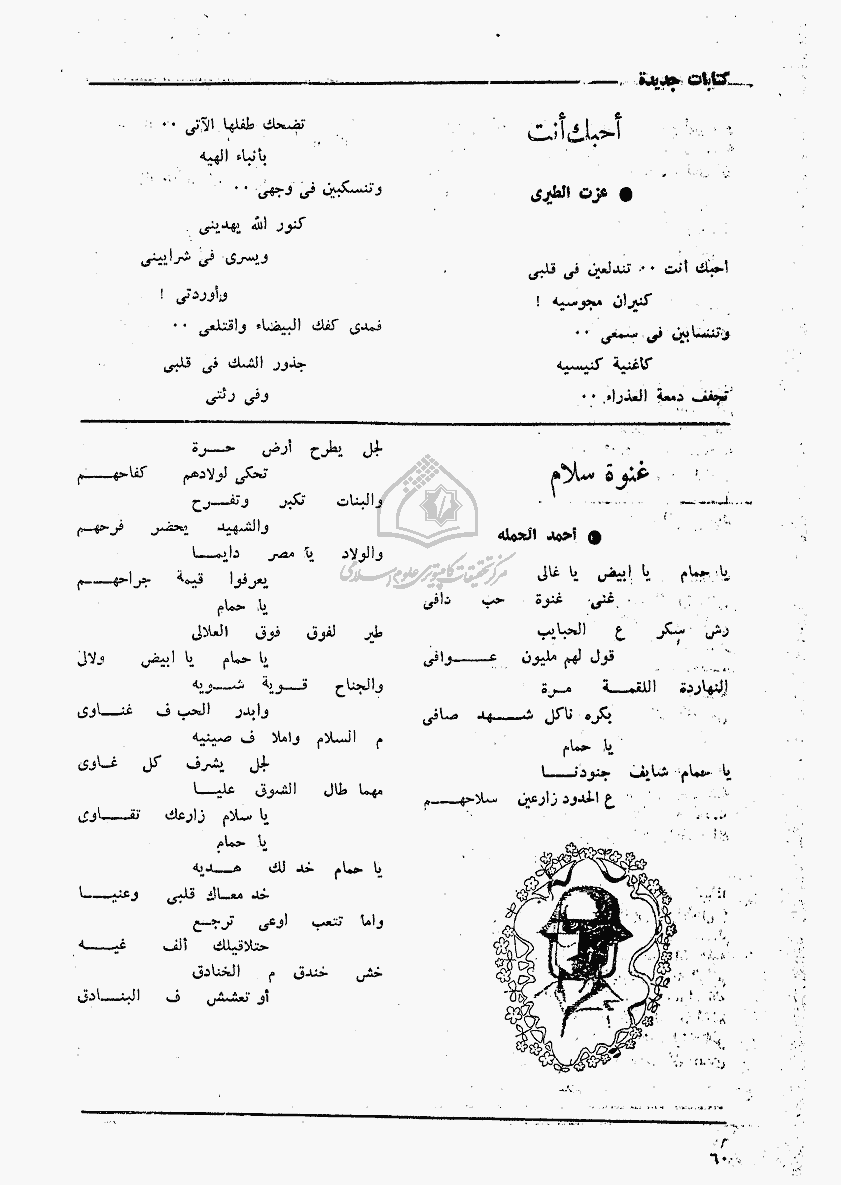 كتابات جديدة
أحبك أنت
● عزت الطيرى
أحبك أنت ٠٠ تندلعين فى قلبى
كنيران مجوسيه !
وتنسابين فى سمعى ٠٠
كأغنية كنيسيه
تجفف دمعة العذراء ٠٠
تضحك طفلها الآتى ٠٠
بأنباء الهيه
وتنسكبين فى وجهى ٠٠
كنور الله يهدينى
ويسرى فى شرايينى
وأوردتى !
فمدى كفك البيضاء واقتلعى ٠٠
جذور الشك فى قلبى
وفى رئتى
غنوة سلام
● أحمد الحمله
يا حمام يا إبيض يا غالى
غنى غنوة حب دافى
رش سكر ع الحبايب
قول لهم مليون عـــوافى
النهاردة اللقمـــة مـرة
بكره ناكل شـــهد صافى
يا حمام
يا حمام شايف جنودنـــا
ع الحدود زارعين سلاحهـــم
لجل يطرح أرض حـــرة
تحكى لولادهم كفاحهـــم
والبنات تكبر وتفـــرح
والشهيد يحضر فرحهـم
والولاد يا مصر دايمـــا
يعرفوا قيمة جراحهـــم
يا حمام
طير لفوق فوق العلالى
يا حمام يا ابيض ولالى
والجناح قـــوية شـــويه
وابدر الحب ف غنـــاوى
م السلام واملا ف صينيه
لجل يشرف كل غـاوى
مهما طال الشوق عليـــا
يا سلام زارعك تقـــاوى
يا حمام
يا حمام خد لك هـــديه
خد معـاك قلبى وعنيـــا
واما تتعب اوعى ترجـع
حتلاقيلك ألف غيـــه
خش خندق م الخنادق
أو تعشش ف البنـــادق
مركز تحقيقات كامپيوتری علوم اسلامی
٦٠